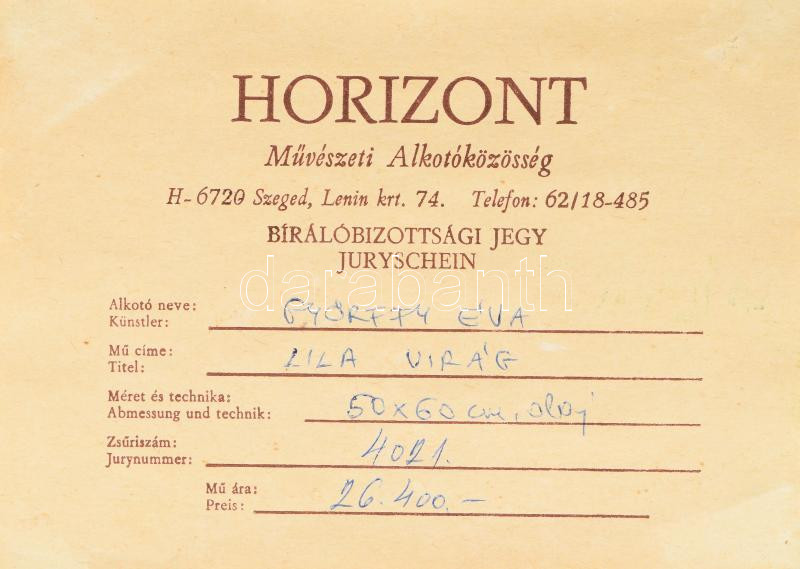 HORIZONT
Művészeti Alkotóközösség
H-6720 Szeged, Lenin krt. 74. Telefon: 62/18-485
BÍRÁLÓBIZOTTSÁGI JEGY
JURYSCHEIN
darabanth
Alkotó neve:
Künstler: GYÖRFFY ÉVA
Mű címe:
Titel: LILA VIRÁG
Méret és technika:
Abmessung und technik: 50x60 cm, olaj
Zsűriszám:
Jurynummer: 4021.
Mű ára:
Preis: 26.400.-